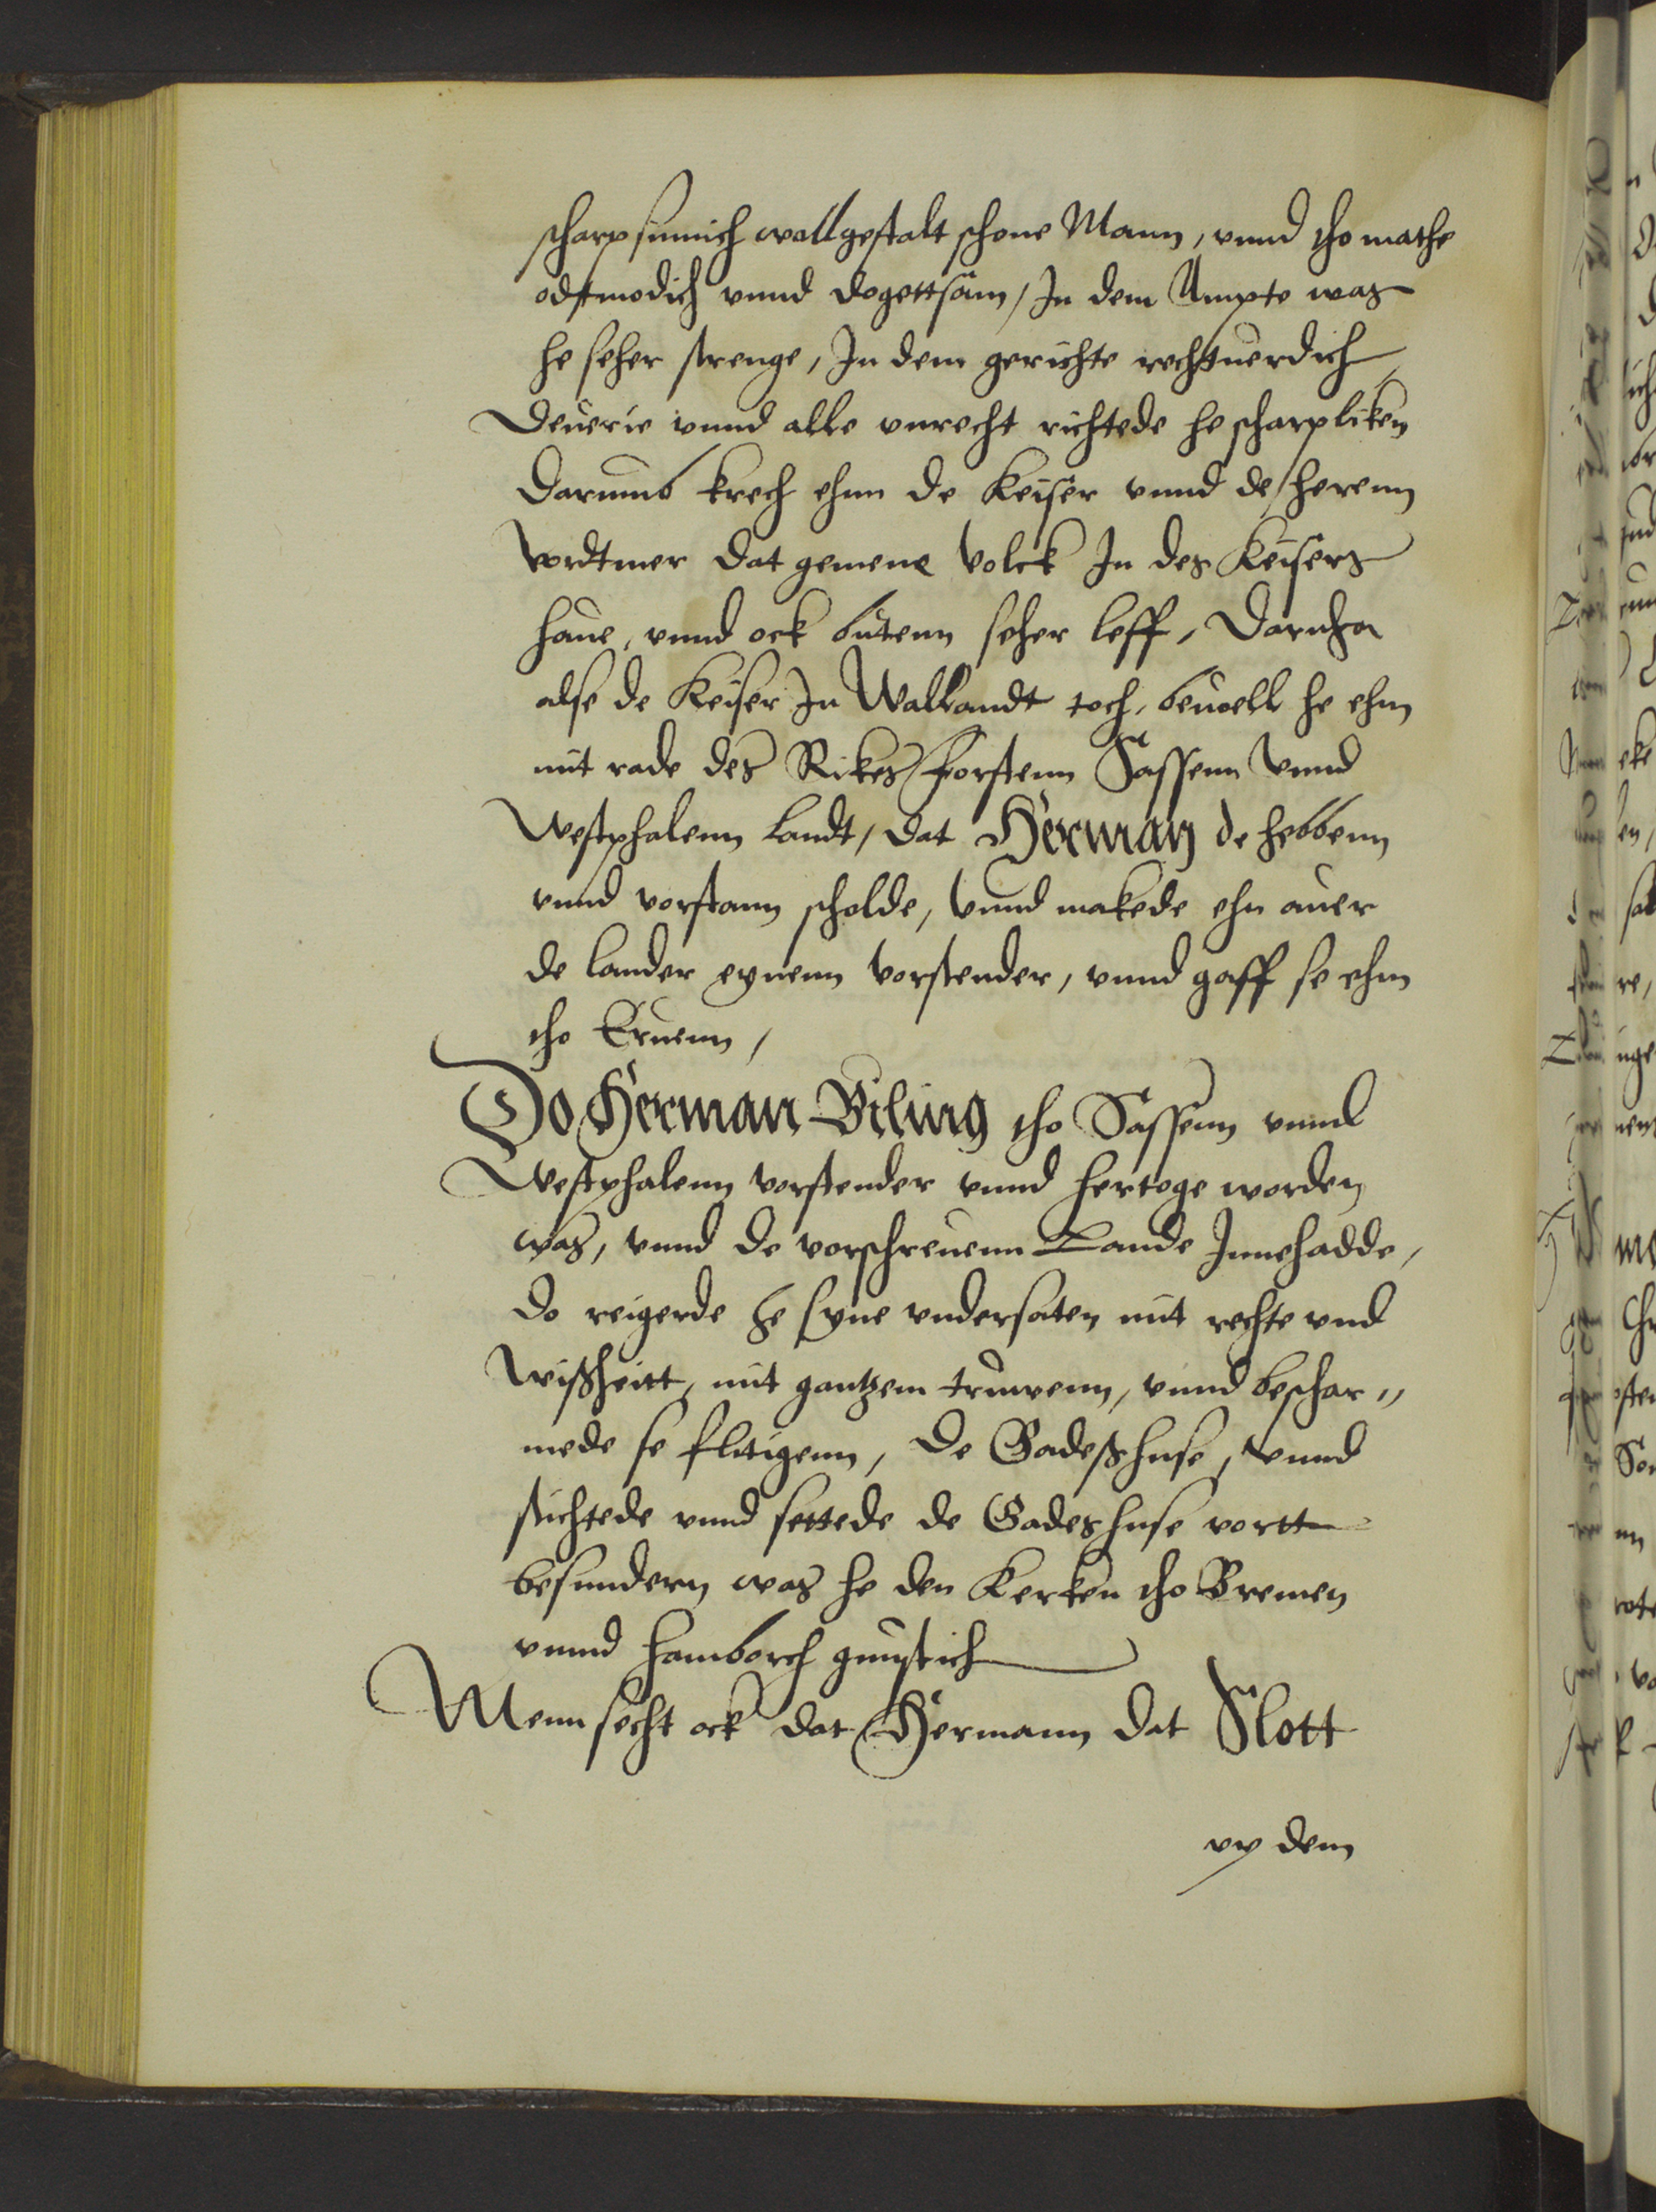 scharpsinnich wollgestalt schone Mann, vnnd tho mathe
odtmodich vnnd dogettsam, In dem Ampte was
he seher strenge, In dem gerichte rechtuerdich,
Deuerie vnnd alle vnrecht richtede he scharpliken
Darumb krech ehnn de Keiser vnnd de herenn
vordtmer dat gemene volck In des Keisers
haue, vnnd ock butenn seher leff, Darnha
alse de Keiser In Wallandt toch, beuoell he ehm
mit rade des Rikes forstenn Sassenn vnnd
Westphalenn landt, dat Herman de hebbenn
vnnd vorstann scholde, vnnd makede ehn auer
de lander eynenn vorstender, vnnd gaff se ehm
tho Eruenn,
Do Herman Bilung tho Sassenn vnnd
Westphalenn vorstender vnnd hertoge worden
was, vnnd de vorschreuenn Lande Innehadde,
do reigerde he syne vndersaten mit rechte vnd
wißheitt, mit gantzem truwenn, vnnd beschar„
mede se flitigenn, De Gadeßhuse, vnnd
stichtede vnnd settede de Gadeshuse vortt
besundern was he den Kerken tho Bremen
vnnd hamborch gunstich
Menn secht ock dat Hermann dat Slott
vp dem